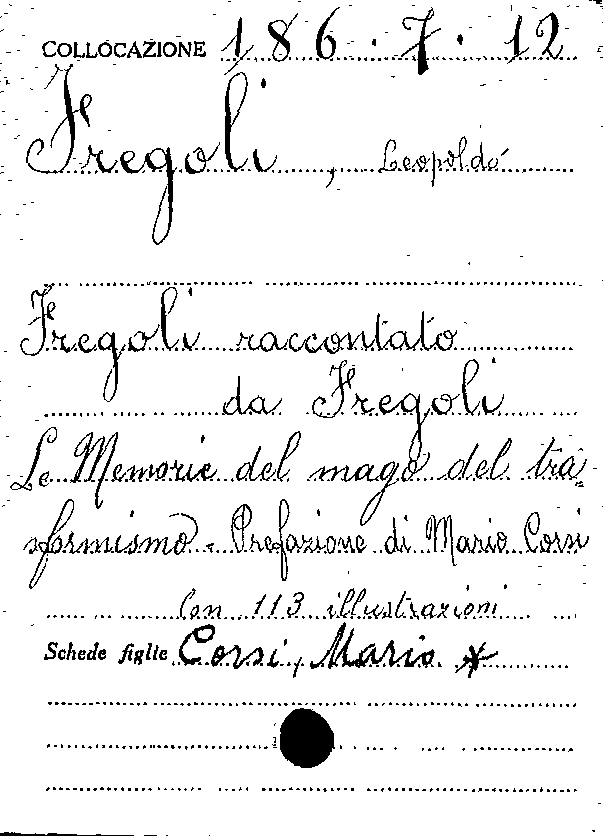 COLLOCAZIONE 186.7.12
Fregoli, Leopoldo
Fregoli raccontato
da Fregoli
Le Memorie del mago del tra=
sformismo - Prefazione di Mario Corsi
Con 113 illustrazioni
Schede figlie Corsi, Mario *